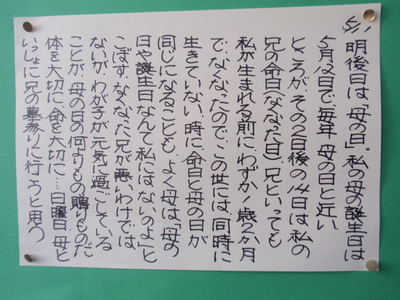 5/11
明後日は「母の日」。私の母の誕生日は
5月12日で、毎年、母の日と近い
ところが、その2日後の14日は、私の
兄の命日(なくなった日)兄といっても
私が生まれる前にわずか1歳2か月
で、なくなったので、この世には、同時に
生きていない、時に命日と母の日が
同じになることも。よく母は「母の
日や誕生日なんて私にはないのよ」と
こぼす。なくなった兄が悪いわけでは
ないが、わが子が元気に過ごしている
ことが、母の日の何よりもの贈りものだ
体を大切に、命を大切に…日曜日、母と
いっしょに兄の墓参りに行こうと思う